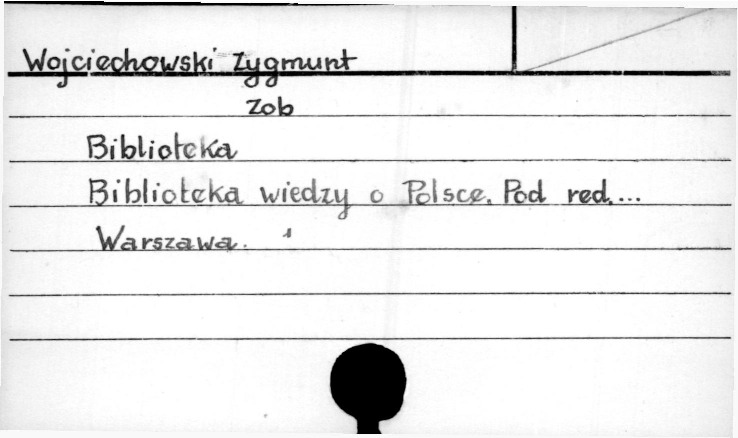 Wojciechowski Zygmunt
Zob
Biblioteka
Biblioteka wiedzy o Polsce. Pod red....
Warszawa.